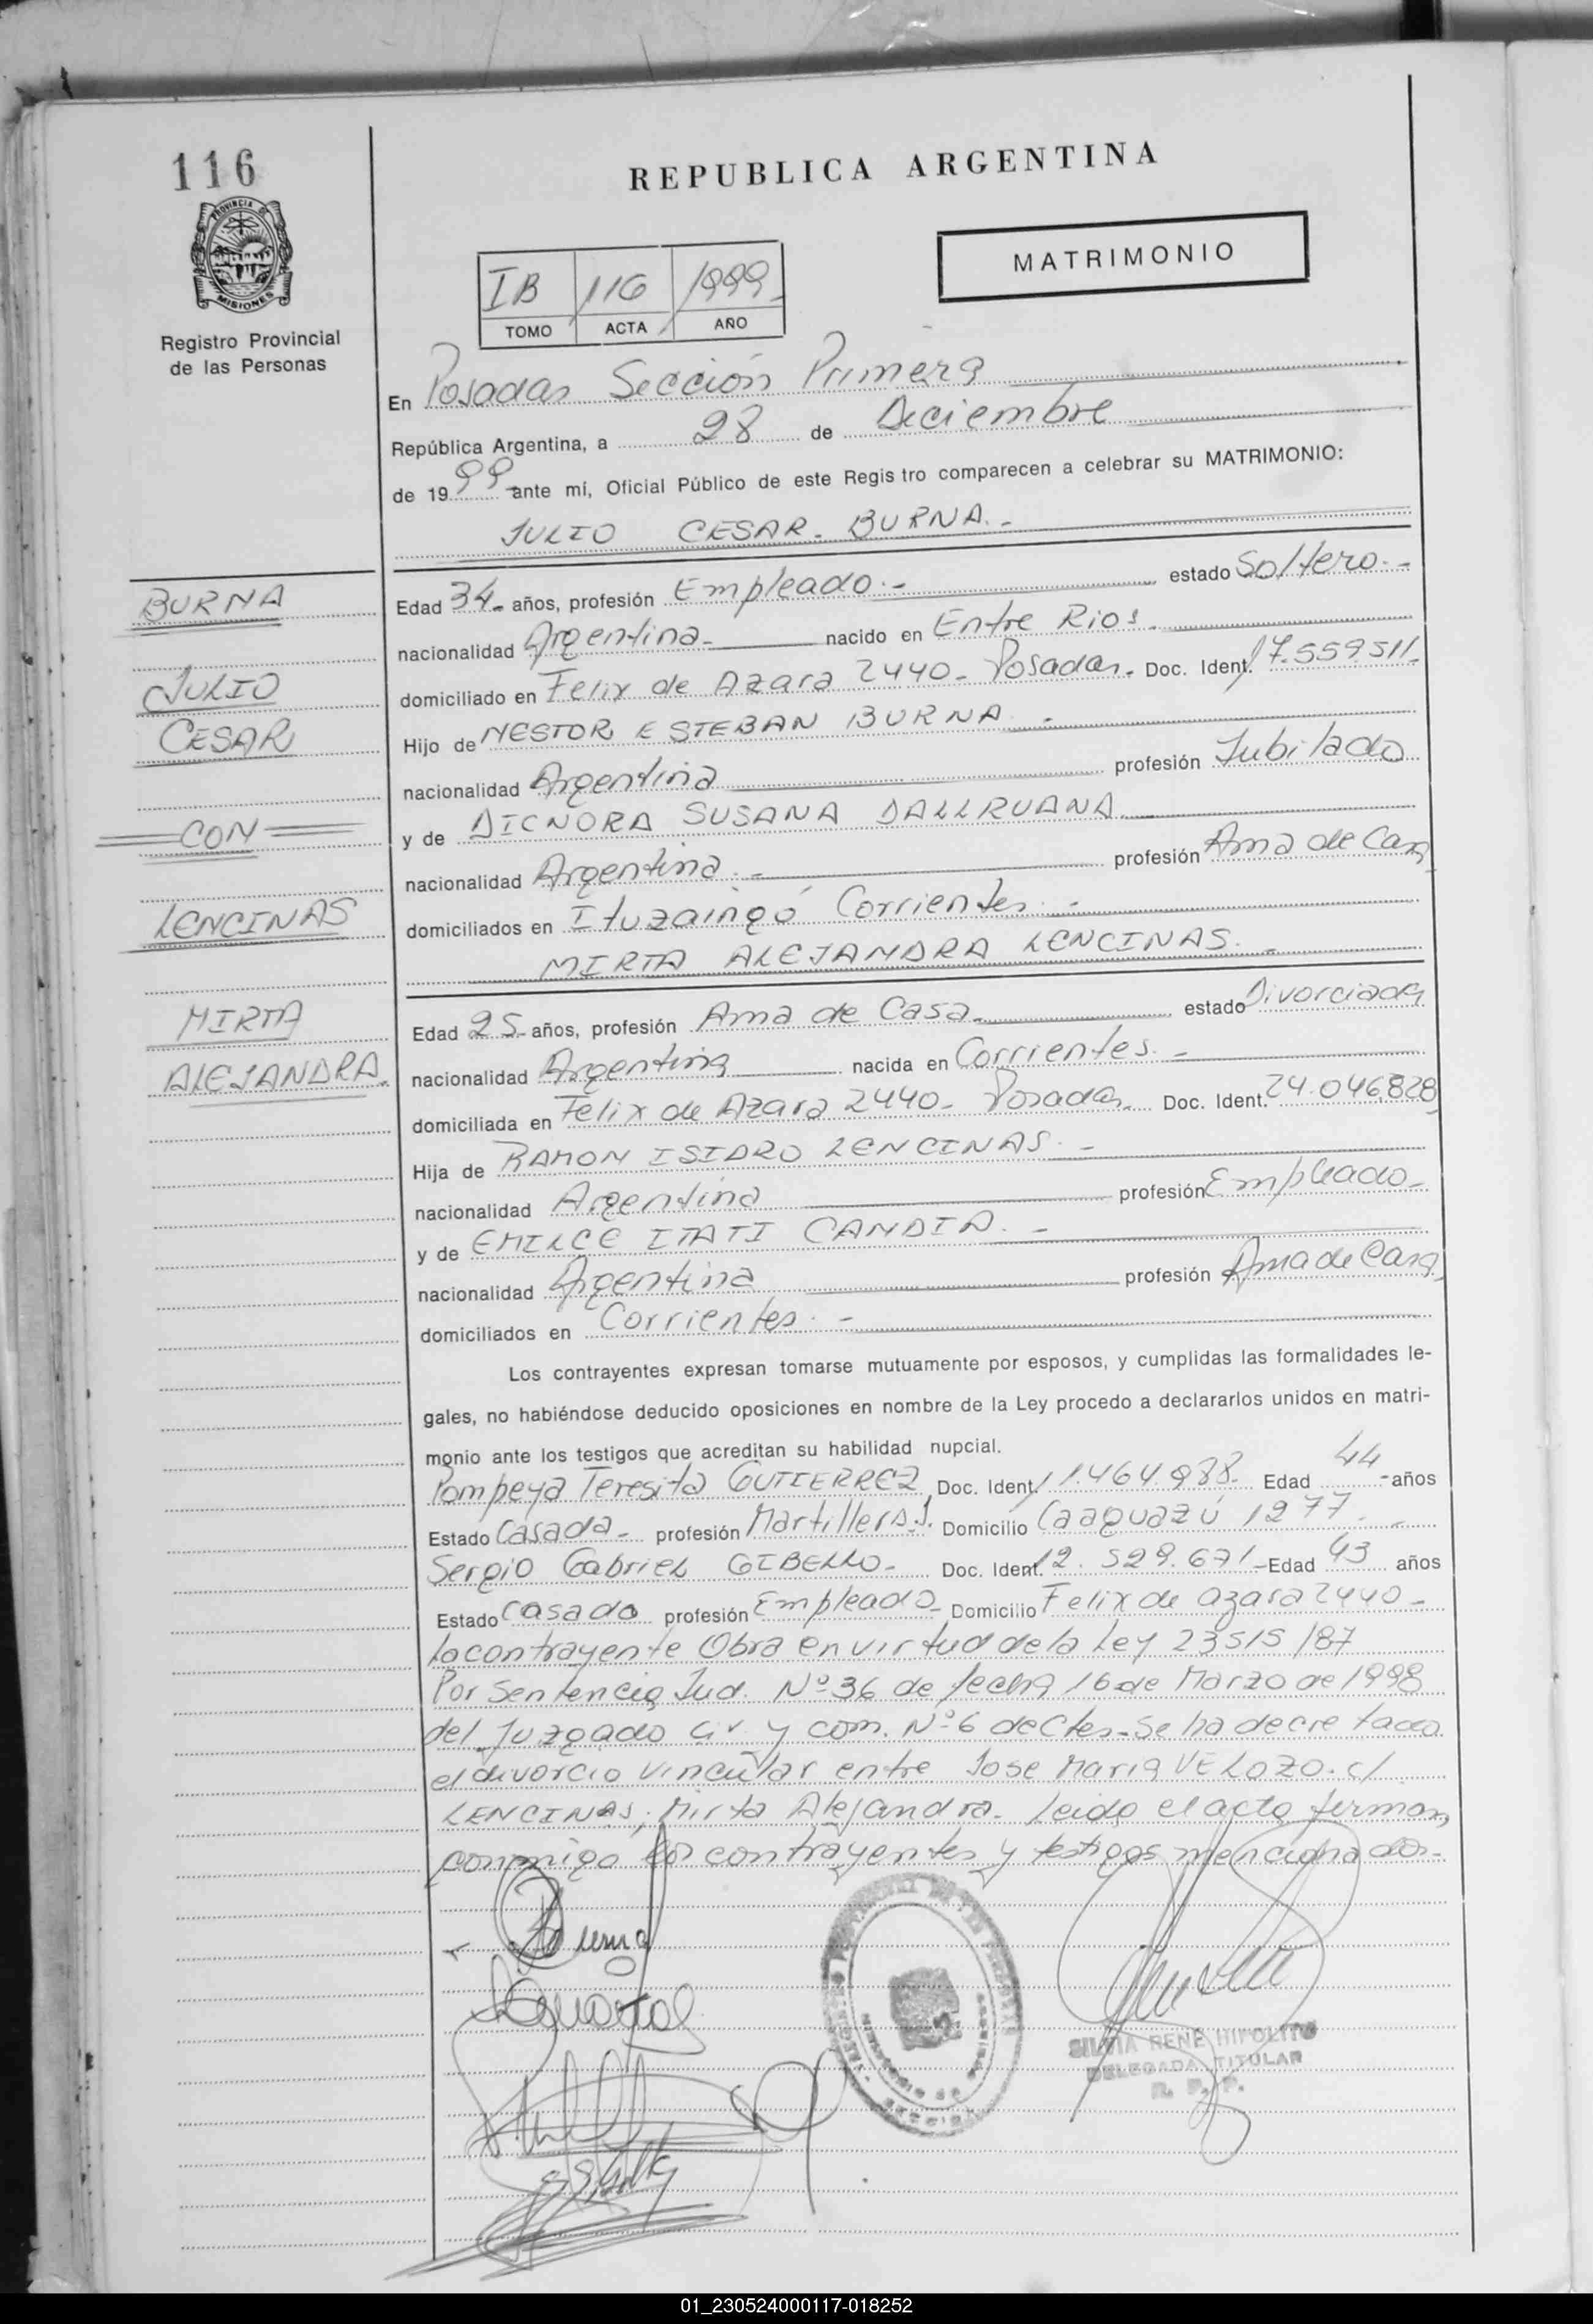 116
PROVINCIA DE
MISIONES
Registro Provincial
de las Personas
REPUBLICA ARGENTINA
MATRIMONIO
IB 116 1999.-
TOMO ACTA AÑO
En Posadas Sección Primera
República Argentina, a 28 de Diciembre
de 1999 ante mí, Oficial Público de este Regis tro comparecen a celebrar su MATRIMONIO:
JULIO CESAR BURNA.-
BURNA
JULIO
CESAR
CON
LENCINAS
MIRTA
ALEJANDRA.
Edad 34 años, profesión Empleado.- estado Soltero.-
nacionalidad Argentina nacido en Entre Rios.
domiciliado en Felix de Azara 2440- Posadas. Doc. Ident. 17.559.511.
Hijo de NESTOR ESTEBAN BURNA.-
nacionalidad Argentina profesión Jubilado
y de DICNORA SUSANA DALLRUANA
nacionalidad Argentina.- profesión Ama de Casa
domiciliados en Ituzaingó Corrientes.-
MIRTA ALEJANDRA LENCINAS.-
Edad 25 años, profesión Ama de Casa. estado Divorciada
nacionalidad Argentina nacida en Corrientes.-
domiciliada en Felix de Azara 2440- Posadas. Doc. Ident. 24.046.828
Hija de RAMON ISIDRO LENCINAS.-
nacionalidad Argentina profesión Empleado-
y de EMILCE ITATI CANDIA.-
nacionalidad Argentina profesión Ama de Casa
domiciliados en Corrientes.-
Los contrayentes expresan tomarse mutuamente por esposos, y cumplidas las formalidades le-
gales, no habiéndose deducido oposiciones en nombre de la Ley procedo a declararlos unidos en matri-
monio ante los testigos que acreditan su habilidad nupcial.
Pompeya Teresita GUTIERREZ Doc. Ident. 11.464.988- Edad 44 años
Estado Casada- profesión Martillera J. Domicilio Caaguazú 1277.-
Sergio Gabriel GIBELLO- Doc. Ident. 12.529.671- Edad 43 años
Estado Casado profesión Empleado- Domicilio Felix de Azara 2440-
la contrayente Obra en virtud de la Ley 23515/87
Por Sentencia Jud. Nº 36 de fecha 16 de Marzo de 1998
del Juzgado Civ. y Com. Nº 6 de Ctes- Se ha decretado
el divorcio vincular entre Jose Maria VELOZO. c/
LENCINAS, Mirta Alejandra- Leida el acta firman,
conmigo los contrayentes y testigos mencionados.-
SILVIA RENE HIPOLITO
DELEGADA TITULAR
R. P. P.
01_230524000117-018252